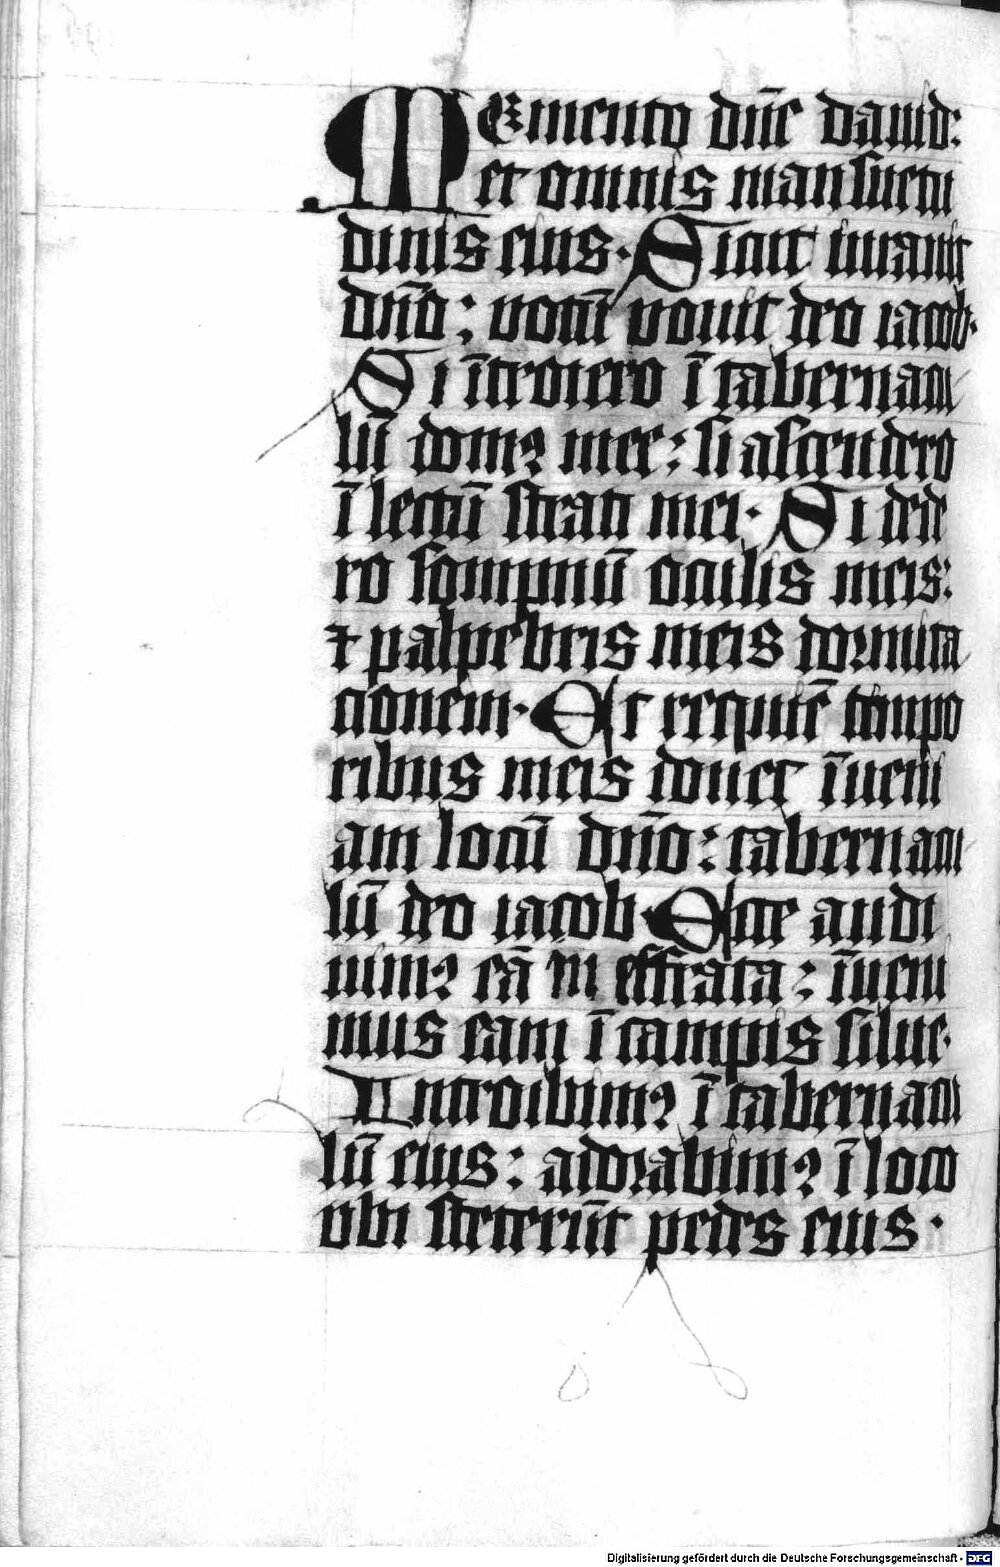 MEmento dn̄e dauid:
et omnis mansuetu
dinis eius· Sicut iurauit
dn̄o: votū vouit deo iacob·
Si ītroiero ī tabernacu
lū domꝰ mee: si ascendero
ī lectū strati mei· Si dede
ro sompnū oculis meis:
⁊ palpebris meis dormita
cionem· Et requiē tempo
ribus meis donec īueni
am locū dn̄o: tabernacu
lū deo iacob· Ecce audi
uimꝰ eā in effrata: īueni
mus eam ī campis silue·
Introibimꝰ ī tabernacu
lū eius: adorabimꝰ ī loco
vbi steterūt pedes eius·
Digitalisierung gefördert durch die Deutsche Forschungsgemeinschaft - DFG